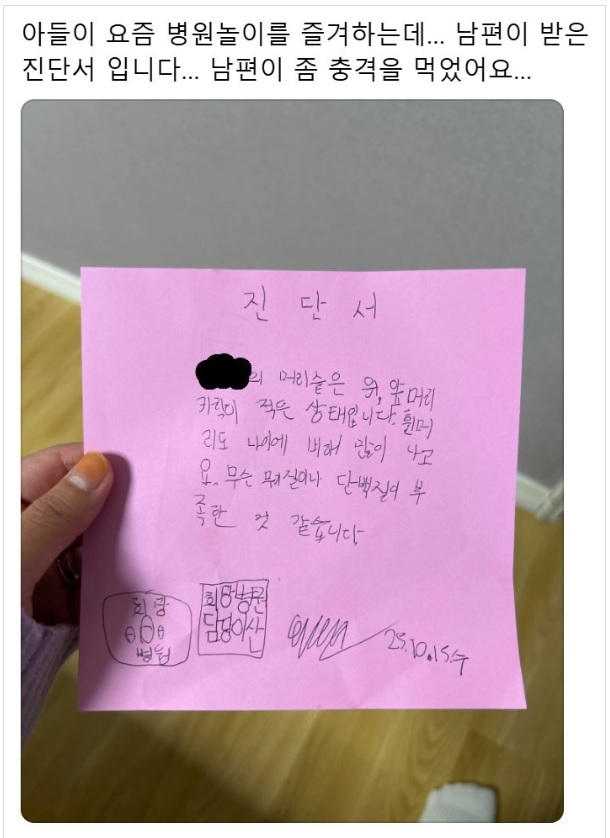 아들이 요즘 병원놀이를 즐겨하는데... 남편이 받은
진단서 입니다... 남편이 좀 충격을 먹었어요...
진 단 서
의 머리숱은 위, 앞머리
카락이 적은 상태입니다. 흰머
리도 나이에 비해 많이 나고
요. 무슨 뭐질이나 단백질이 부
족한 것 같습니다
희망
병원
희망병원
담당의사
25.10.15.수